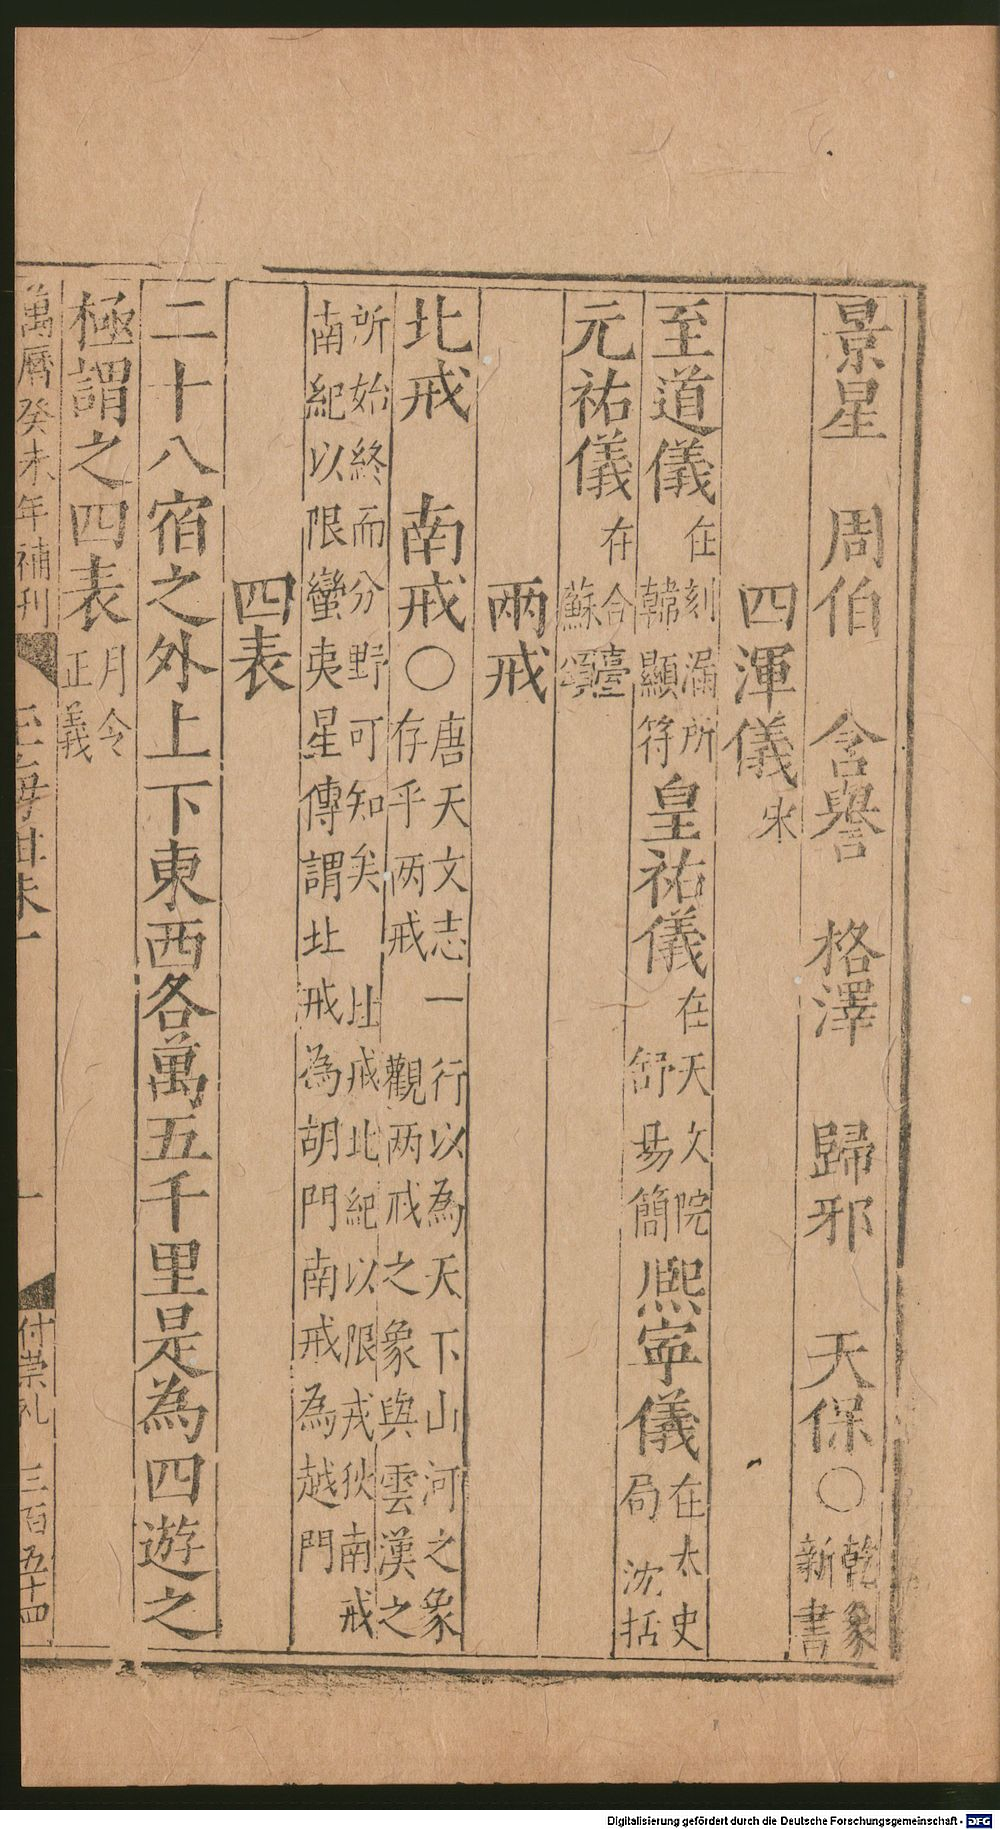 景星　周伯　含譽　格澤　歸邪　天保○乾象新書
四渾儀宋
至道儀在刻漏所韓顯符皇祐儀在天文院舒易簡熙寧儀在太史局沈括
元祐儀在合臺蘇頌
兩戒
北戒　南戒○唐天文志一行以為天下山河之象存乎兩戒觀兩戒之象與雲漢之
所始終而分野可知矣北戒北紀以限戎狄南戒南紀以限蠻夷星傳謂北戒為胡門南戒為越門
四表
二十八宿之外上下東西各萬五千里是為四遊之
極謂之四表月令正義
萬曆癸未年補刊　付崇礼　三百五十四
Digitalisierung gefördert durch die Deutsche Forschungsgemeinschaft - DFG